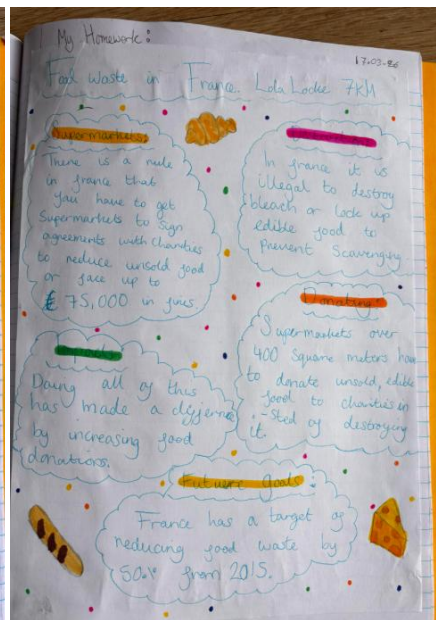 My Homework:
17.03.26
Food waste in France. Lola Locke 7KH
Supermarkets:
There is a rule
in france that
you have to get
Supermarkets to sign
agreements with charities
to reduce unsold food
or face up to
€ 75,000 in fines
In france it is
illegal to destroy
bleach or lock up
edible food to
Prevent Scavenging
Donating:
Supermarkets over
400 Square meters have
to donate unsold, edible
food to charities in
-sted of destroying
it.
Doing all of this
has made a differnce
by increasing food
donations.
Future goals:
France has a target of
reducing food waste by
50% from 2015.